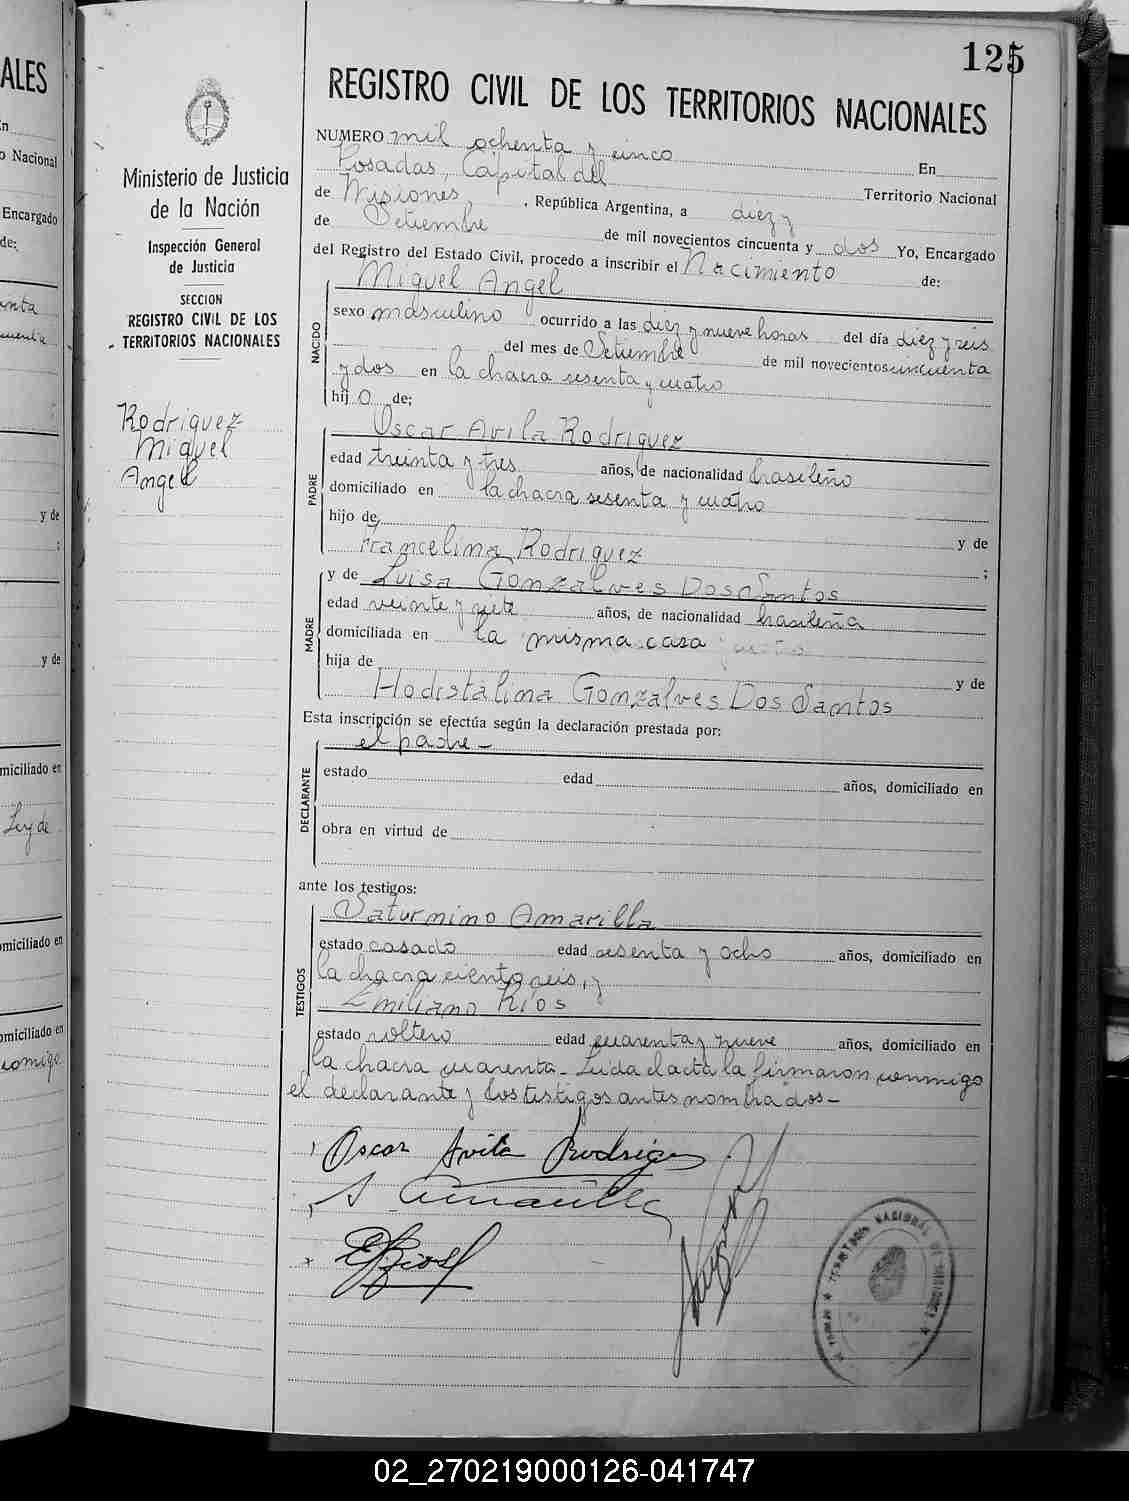 125
ALES
REGISTRO CIVIL DE LOS TERRITORIOS NACIONALES
Ministerio de Justicia
de la Nación
Inspección General
de Justicia
SECCION
REGISTRO CIVIL DE LOS
TERRITORIOS NACIONALES
Rodriguez
Miguel
Angel
NUMERO mil ochenta y cinco En
Posadas, Capital del Territorio Nacional
de Misiones, , República Argentina, a diez y
de Setiembre de mil novecientos cincuenta y dos Yo, Encargado
del Registro del Estado Civil, procedo a inscribir el Nacimiento de:
Miguel Angel
NACIDO
sexo masculino ocurrido a las diez y nueve horas del día diez y seis
del mes de Setiembre de mil novecientos cincuenta
y dos en la chacra sesenta y cuatro
hij o de;
Oscar Avila Rodriguez
PADRE
edad treinta y tres años, de nacionalidad brasileño
domiciliado en la chacra sesenta y cuatro
hijo de, y de
Francelina Rodriguez ;
y de Luisa Gonzalves Dos Santos
MADRE
edad veinte y siete años, de nacionalidad brasileña
domiciliada en la misma casa
hija de y de
Hodistalina Gonzalves Dos Santos
Esta inscripción se efectúa según la declaración prestada por:
el padre -
DECLARANTE
estado edad años, domiciliado en
obra en virtud de
ante los testigos:
Saturnino Amarilla
TESTIGOS
estado casado edad sesenta y ocho años, domiciliado en
la chacra ciento seis, y
Emiliano Rios
estado soltero edad cuarenta y nueve años, domiciliado en
la chacra cuarenta - Leida el acta la firmaron conmigo
el declarante y los testigos antes nombrados -
Oscar Avila Rodrigues
S Amarilla
E Rios
02_270219000126-041747